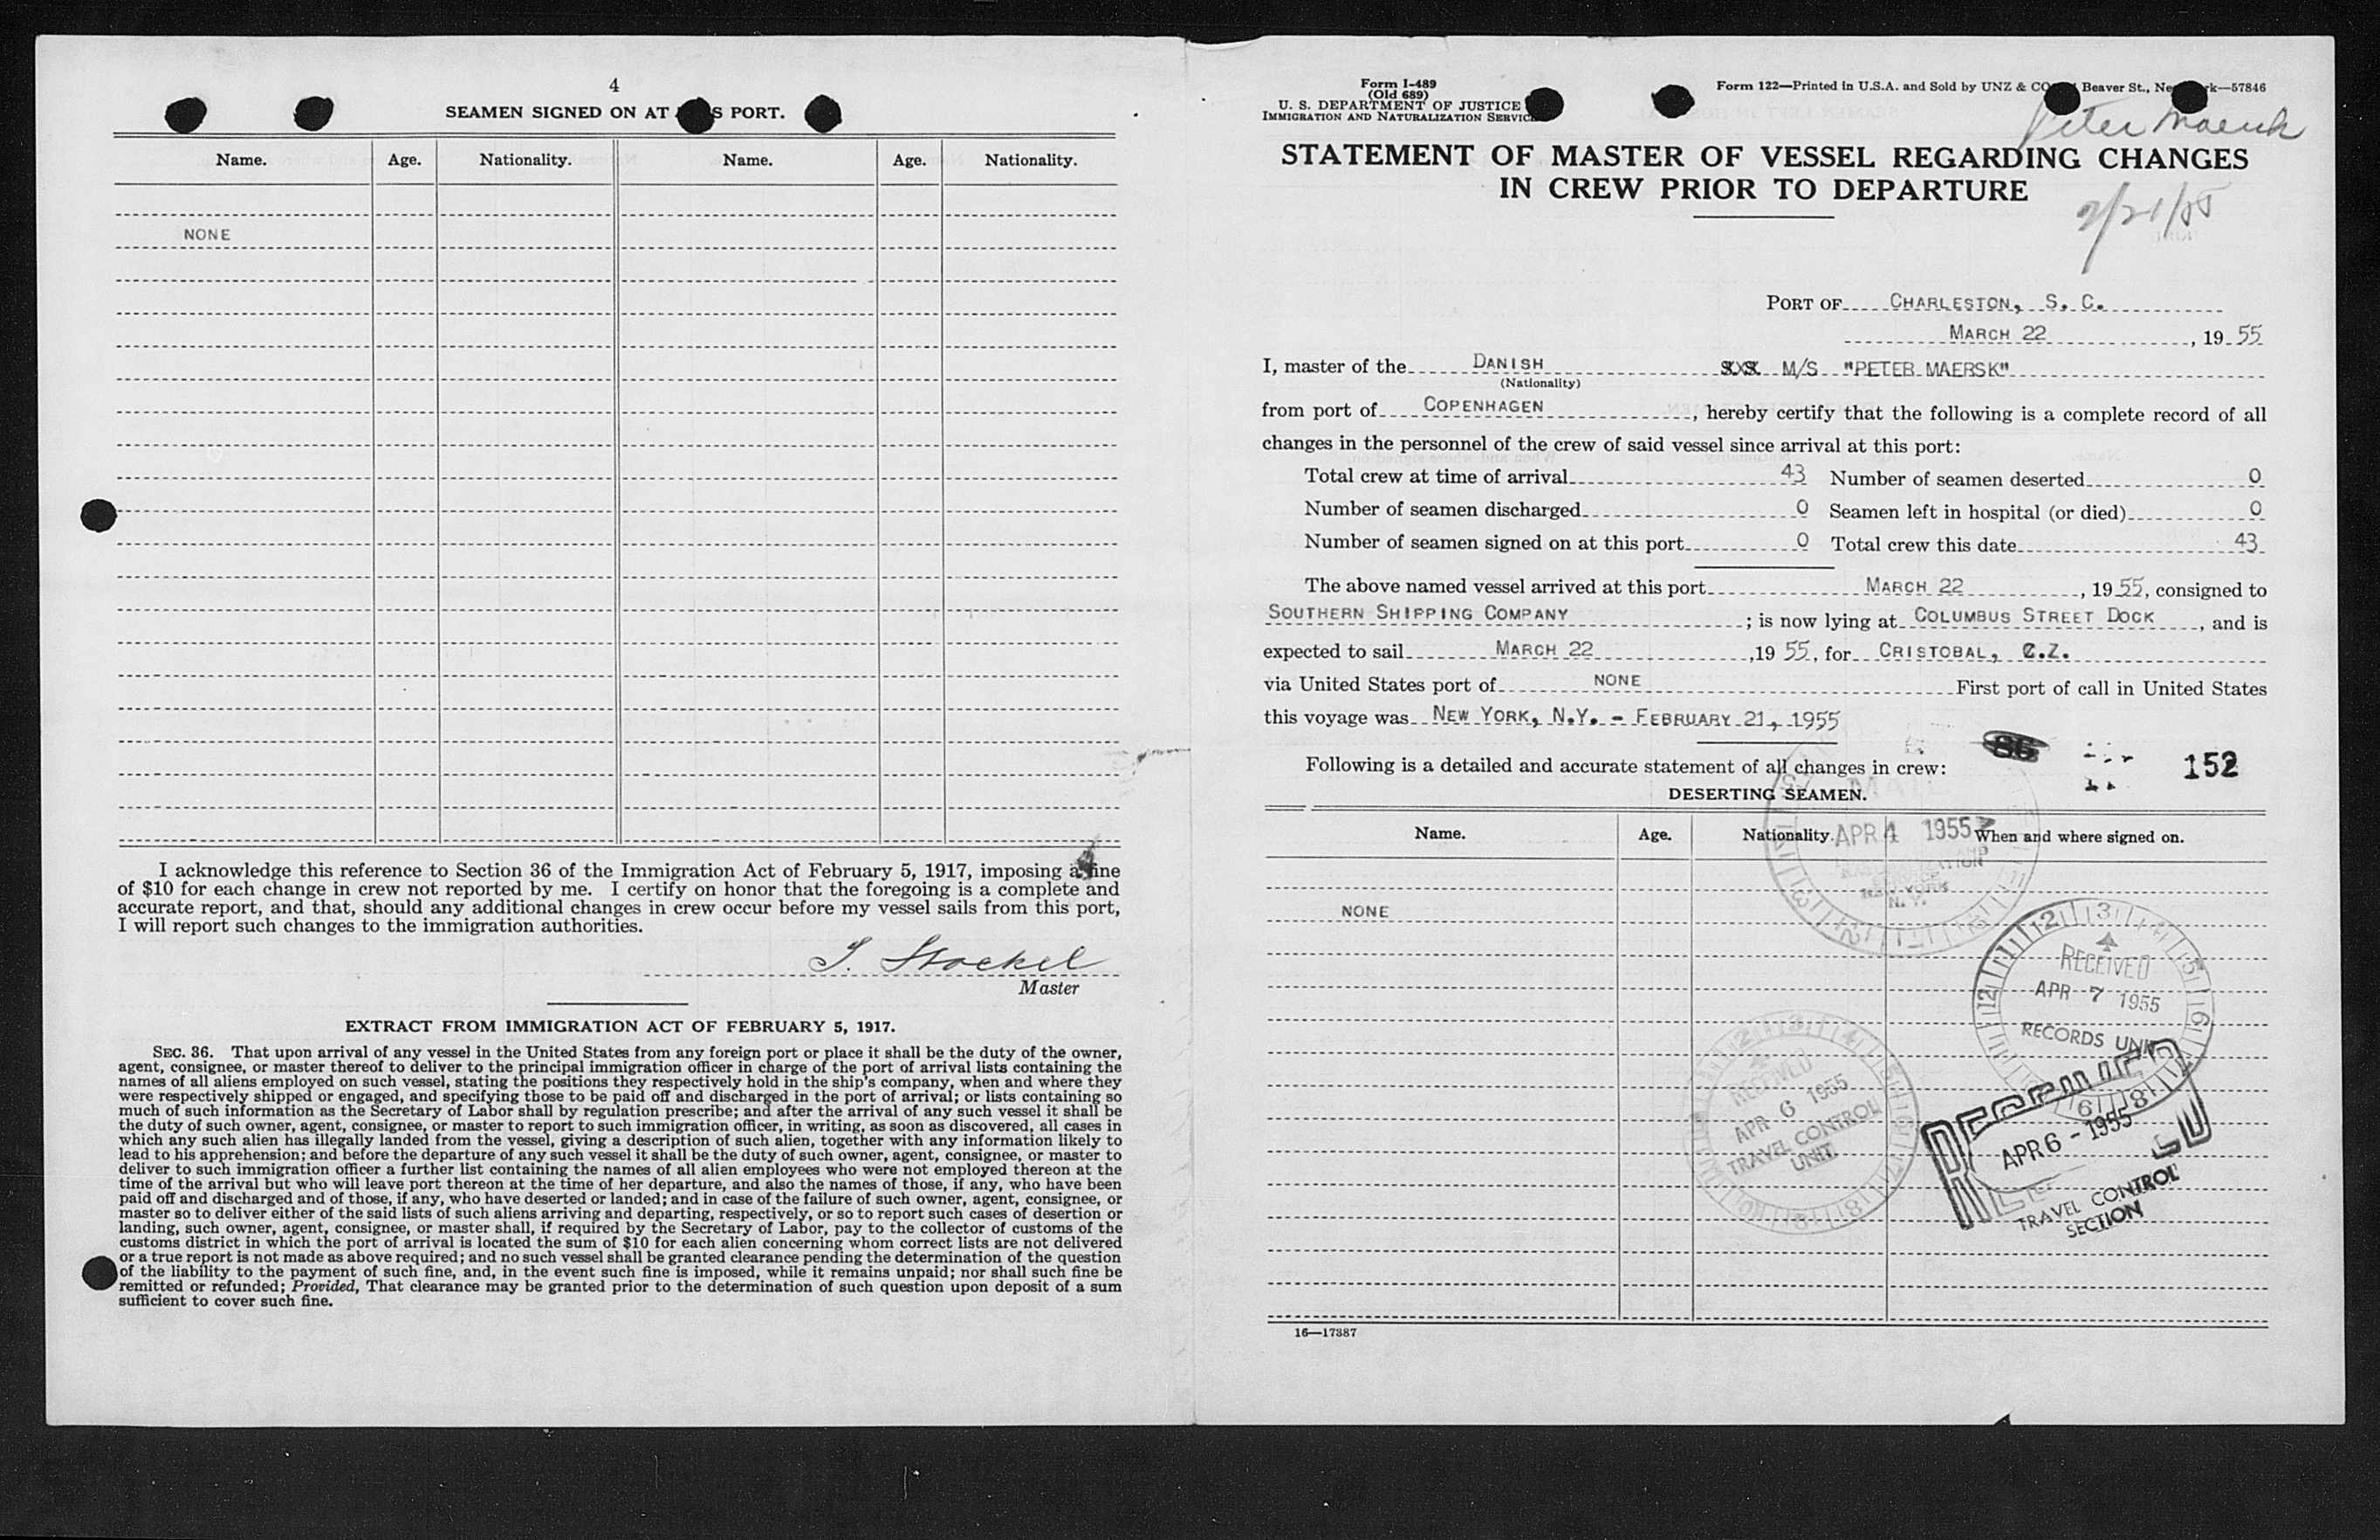 4
SEAMEN SIGNED ON AT S PORT.
Name. Age. Nationality. Name. Age. Nationality.
NONE
I acknowledge this reference to Section 36 of the Immigration Act of February 5, 1917, imposing a fine
of $10 for each change in crew not reported by me. I certify on honor that the foregoing is a complete and
accurate report, and that, should any additional changes in crew occur before my vessel sails from this port,
I will report such changes to the immigration authorities.
Stockel
Master
EXTRACT FROM IMMIGRATION ACT OF FEBRUARY 5, 1917.
SEC. 36. That upon arrival of any vessel in the United States from any foreign port or place it shall be the duty of the owner,
agent, consignee, or master thereof to deliver to the principal immigration officer in charge of the port of arrival lists containing the
names of all aliens employed on such vessel, stating the positions they respectively hold in the ship's company, when and where they
were respectively shipped or engaged, and specifying those to be paid off and discharged in the port of arrival; or lists containing so
much of such information as the Secretary of Labor shall by regulation prescribe; and after the arrival of any such vessel it shall be
the duty of such owner, agent, consignee, or master to report to such immigration officer, in writing, as soon as discovered, all cases in
which any such alien has illegally landed from the vessel, giving a description of such alien, together with any information likely to
lead to his apprehension; and before the departure of any such vessel it shall be the duty of such owner, agent, consignee, or master to
deliver to such immigration officer a further list containing the names of all alien employees who were not employed thereon at the
time of the arrival but who will leave port thereon at the time of her departure, and also the names of those, if any, who have been
paid off and discharged and of those, if any, who have deserted or landed; and in case of the failure of such owner, agent, consignee, or
master so to deliver either of the said lists of such aliens arriving and departing, respectively, or so to report such cases of desertion or
landing, such owner, agent, consignee, or master shall, if required by the Secretary of Labor, pay to the collector of customs of the
customs district in which the port of arrival is located the sum of $10 for each alien concerning whom correct lists are not delivered
or a true report is not made as above required; and no such vessel shall be granted clearance pending the determination of the question
of the liability to the payment of such fine, and, in the event such fine is imposed, while it remains unpaid; nor shall such fine be
remitted or refunded; Provided, That clearance may be granted prior to the determination of such question upon deposit of a sum
sufficient to cover such fine.
Form I-489
(Old 689)
U. S. DEPARTMENT OF JUSTICE
IMMIGRATION AND NATURALIZATION SERVICE
Form 122—Printed in U.S.A. and Sold by UNZ & CO Beaver St., New York—57846
Peter Maersk
STATEMENT OF MASTER OF VESSEL REGARDING CHANGES
IN CREW PRIOR TO DEPARTURE
2/21/55
PORT OF CHARLESTON, S. C.
MARCH 22, 19 55
I, master of the DANISH M/S "PETER MAERSK"
(Nationality)
from port of COPENHAGEN, hereby certify that the following is a complete record of all
changes in the personnel of the crew of said vessel since arrival at this port:
Total crew at time of arrival 43 Number of seamen deserted 0
Number of seamen discharged 0 Seamen left in hospital (or died) 0
Number of seamen signed on at this port 0 Total crew this date 43
The above named vessel arrived at this port MARCH 22, 19 55, consigned to
SOUTHERN SHIPPING COMPANY; is now lying at COLUMBUS STREET DOCK, and is
expected to sail MARCH 22, 19 55, for CRISTOBAL, C.Z.
via United States port of NONE First port of call in United States
this voyage was NEW YORK, N.Y. - FEBRUARY 21, 1955
152
Following is a detailed and accurate statement of all changes in crew:
DESERTING SEAMEN.
Name. Age. Nationality. When and where signed on.
APR 4 1955
NEW YORK
N. Y.
NONE
RECEIVED
APR 7 1955
RECORDS UNIT
RECEIVED
APR 6 1955
TRAVEL CONTROL
UNIT
RECEIVED
APR 6 - 1955
TRAVEL CONTROL
SECTION
16—17387